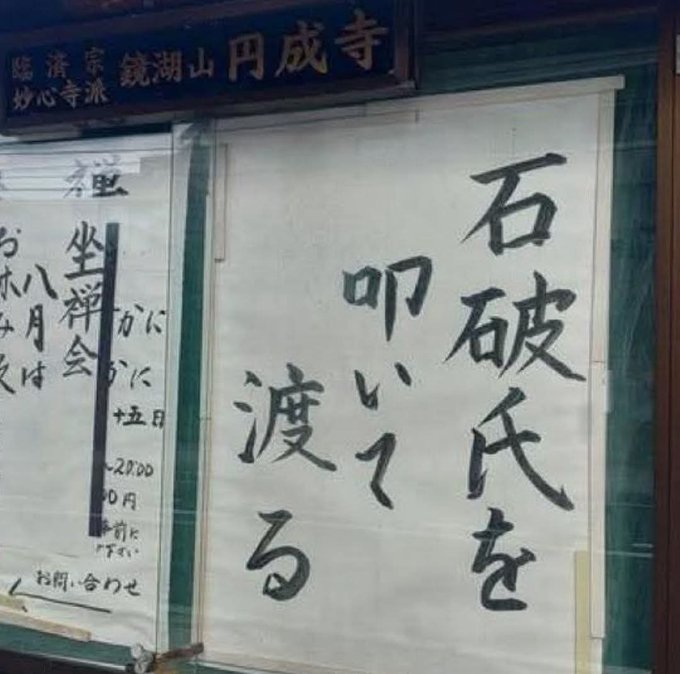 臨済宗
妙心寺派
鏡湖山円成寺
石破氏を
叩いて
渡る
禅
坐禅会
かに
かに
十五日
20:00
00円
前に
下さい
お問い合わせ
八月は
お休み